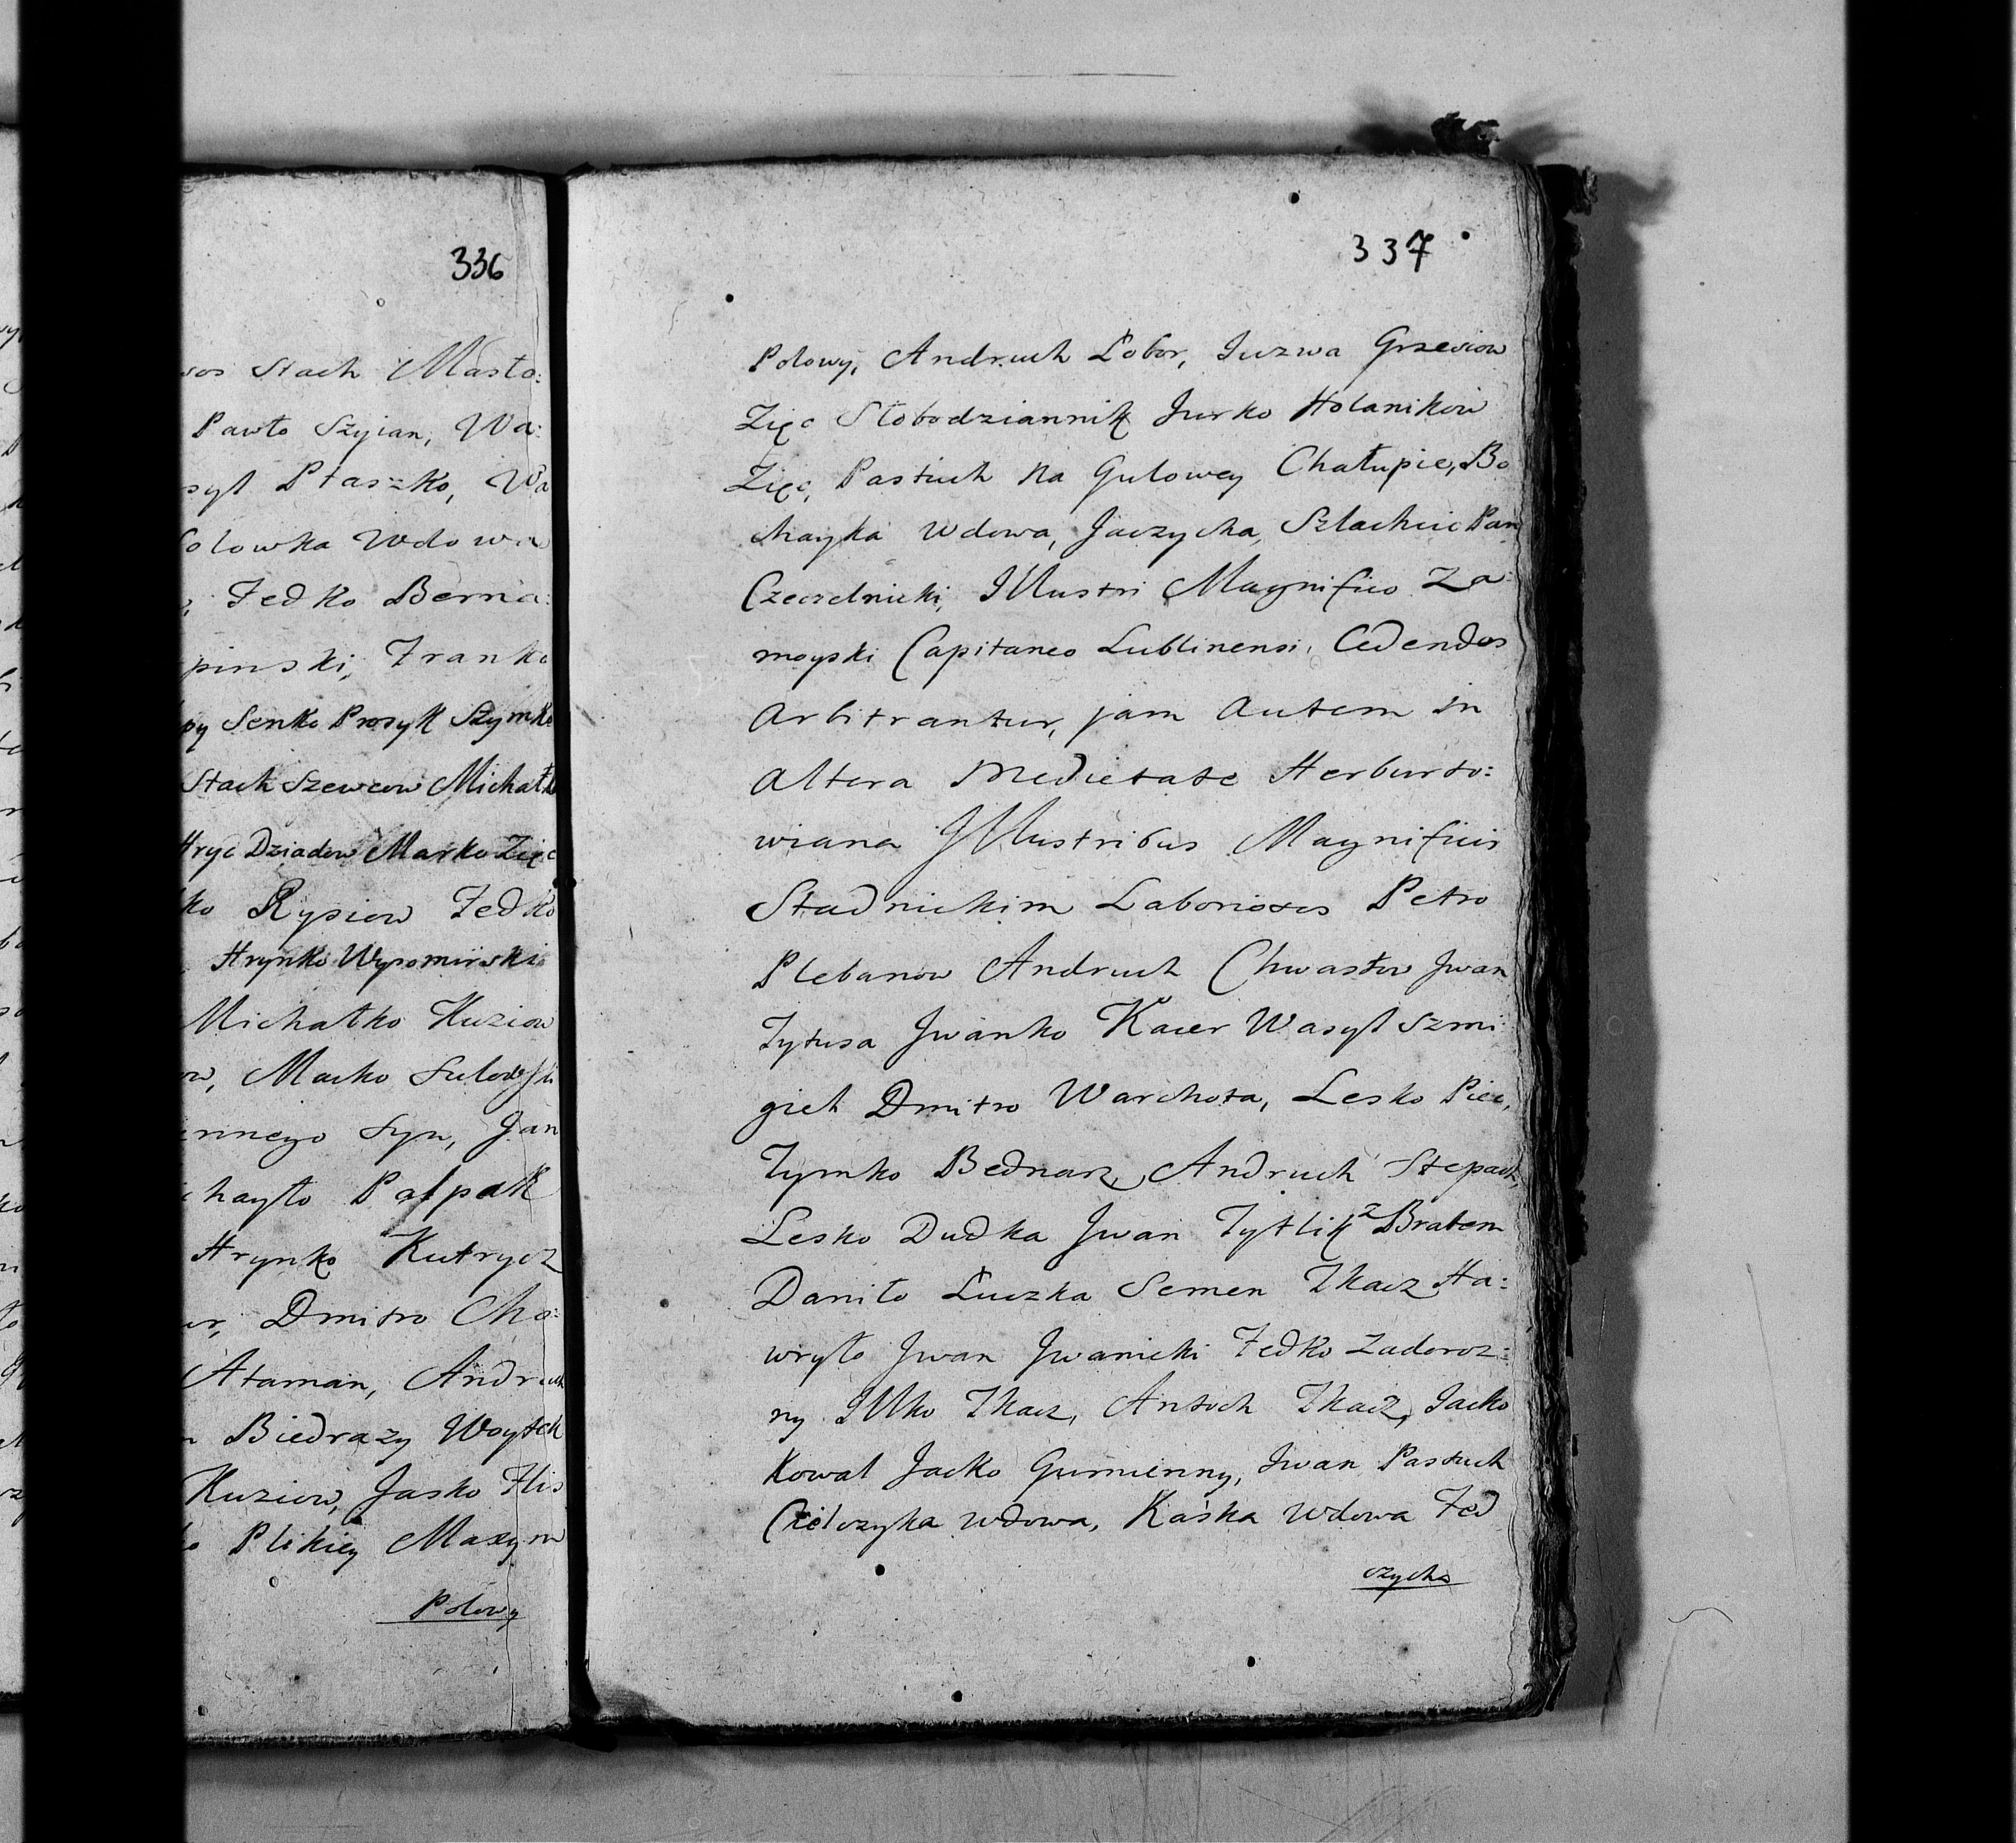 336
Stach Masło:
Pawło Szyian, Wa:
syl Ptaszko, Wa
olowka Wdowa
Fedko Berna:
pinski, Franko
py Senko Prosyk Szymko
Stach Szewcow Michałko
Hryc Dziadow Marko Zięc
ko Rysiow Fedko
Hrynko
Michałko Kuziow
ow, Macko
nnego Syn, Jan
chayło Pałpak
Hrynko Kutrycz
Dmitro Cho:
Ataman, Andruch
Biedrazy Woytek
Kuziow, Jasko Hlis
Plikiey Maxym
Polowy
337
Polowy, Andruch Łobor, Juzwa Grzesiow
Zięc Słobodziannik Jurko Holanikow
Zięc, Pastuch na Gulowey Chałupie, Bo
chayka Wdowa, Jaczycha, Szlachcic Pan
Czeczelnicki, Illustri Magnifico Za:
moyski Capitaneo Lublinensi, Cedendos
Arbitrantur, jam autem in
altera Medietate Herburto:
wiana Illustribus Magnificis
Stadnickim Laboriosos Petro
Plebanow Andruch Chwastow Jwan
Tytusa Jwanko Kacer Wasyl Szmi:
giel Dmitro Warchoła, Lesko Piec,
Tymko Bednarz, Andruch Stepach,
Lesko Dudka Jwan Tytlik z Bratem
Daniło Łuczka Semen Tkacz Ha:
wryło Jwan Jwanicki Fedko Zadoroz:
ny Illko Tkacz, Antoch Tkacz, Jacko
Kowal Jacko Gumienny, Iwan Pastuch
Cielczyka wdowa, Kaśka Wdowa Fed
czycha